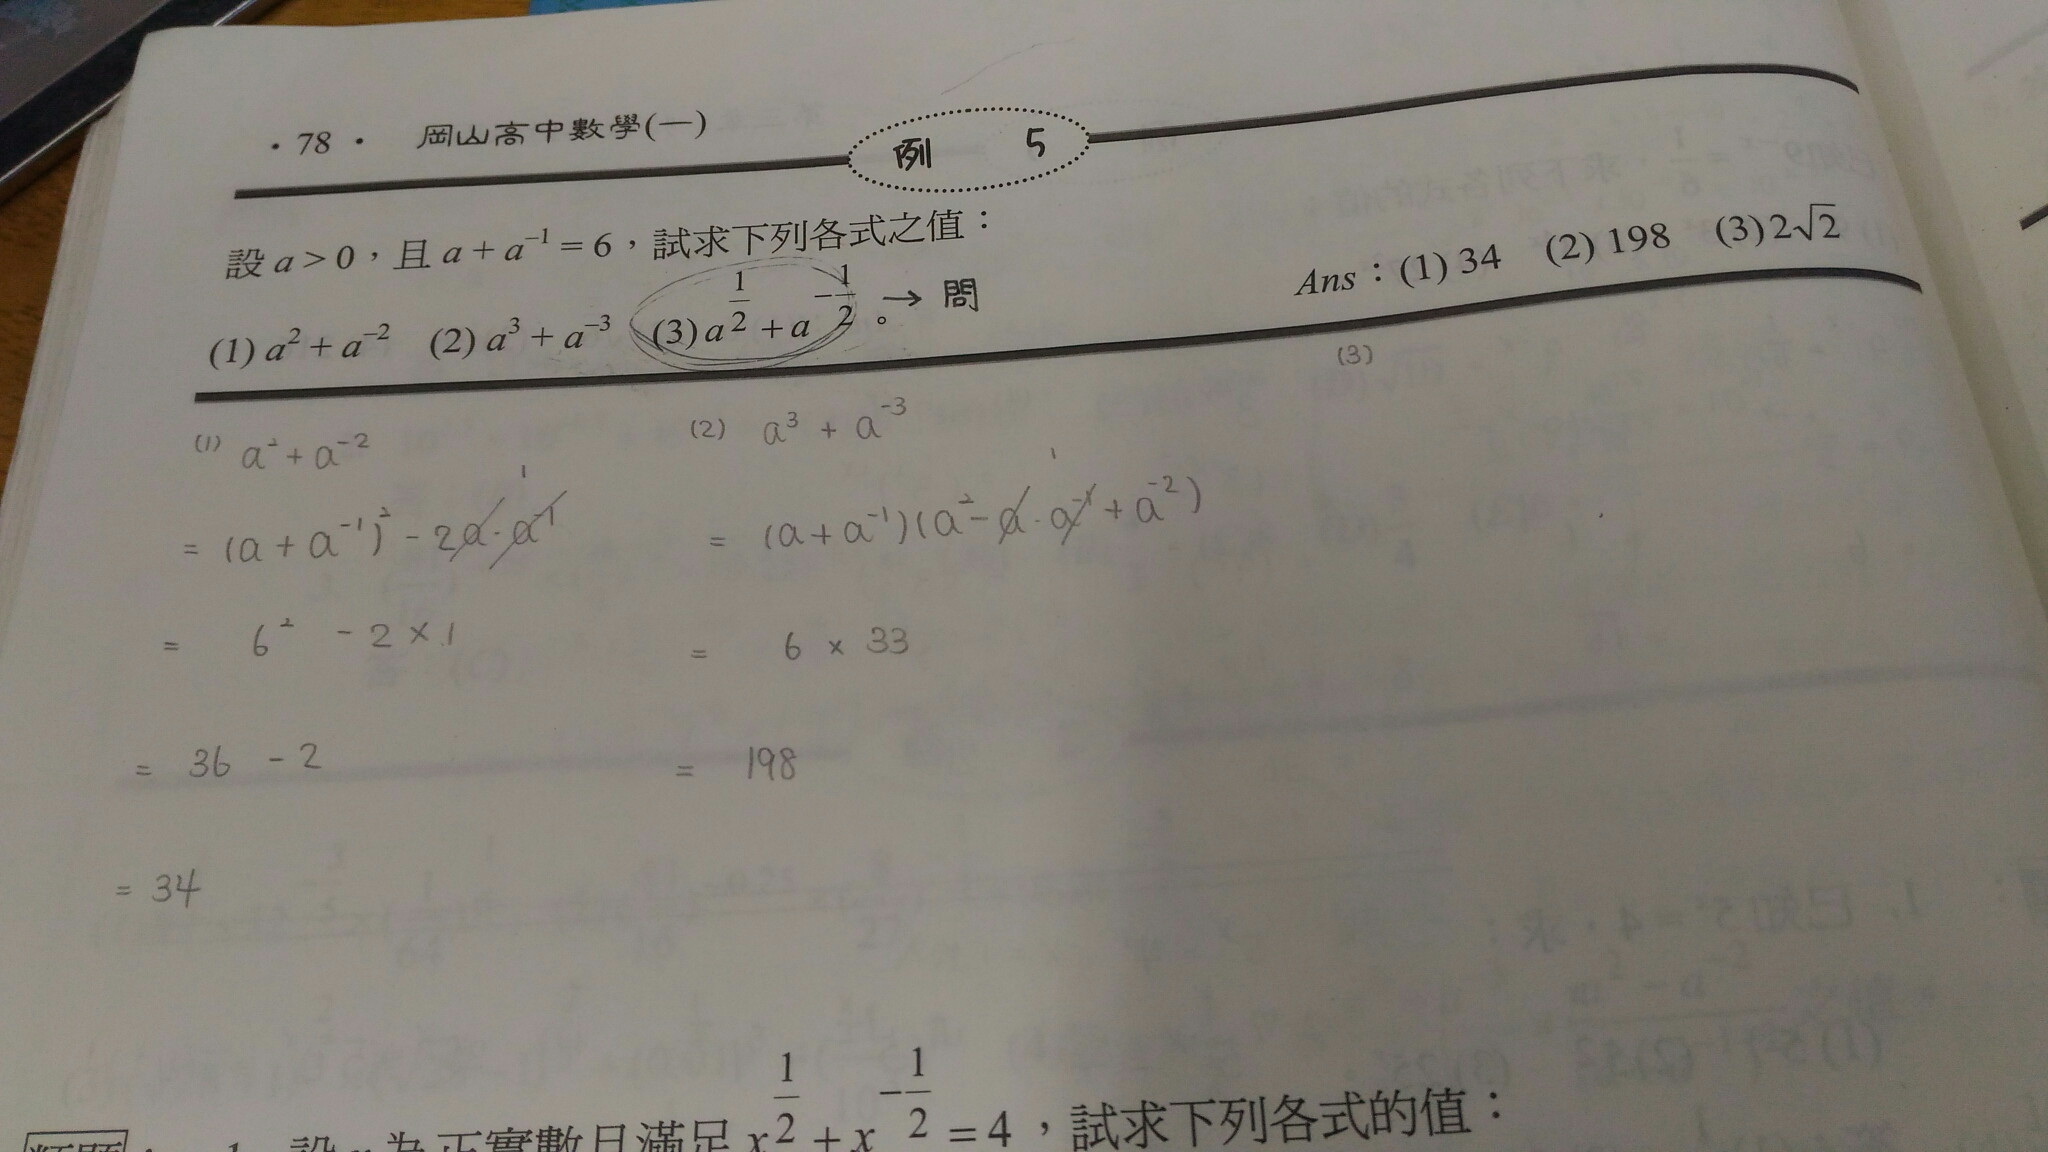 · 78 · 岡山高中數學(一)
例 5
設 a > 0，且 a + a⁻¹ = 6，試求下列各式之值：
(1) a² + a⁻² (2) a³ + a⁻³ (3) a^{1/2} + a^{-1/2} 。→ 問
Ans：(1) 34 (2) 198 (3) 2√2
(1) a² + a⁻²
= (a + a⁻¹)² - 2a · a⁻¹ 1
= 6² - 2 × 1
= 36 - 2
= 34
(2) a³ + a⁻³
= (a + a⁻¹)(a² - a · a⁻¹ + a⁻²) 1
= 6 × 33
= 198
(3)
類題： 1. 設 x 為正實數且滿足 x^{1/2} + x^{-1/2} = 4，試求下列各式的值：